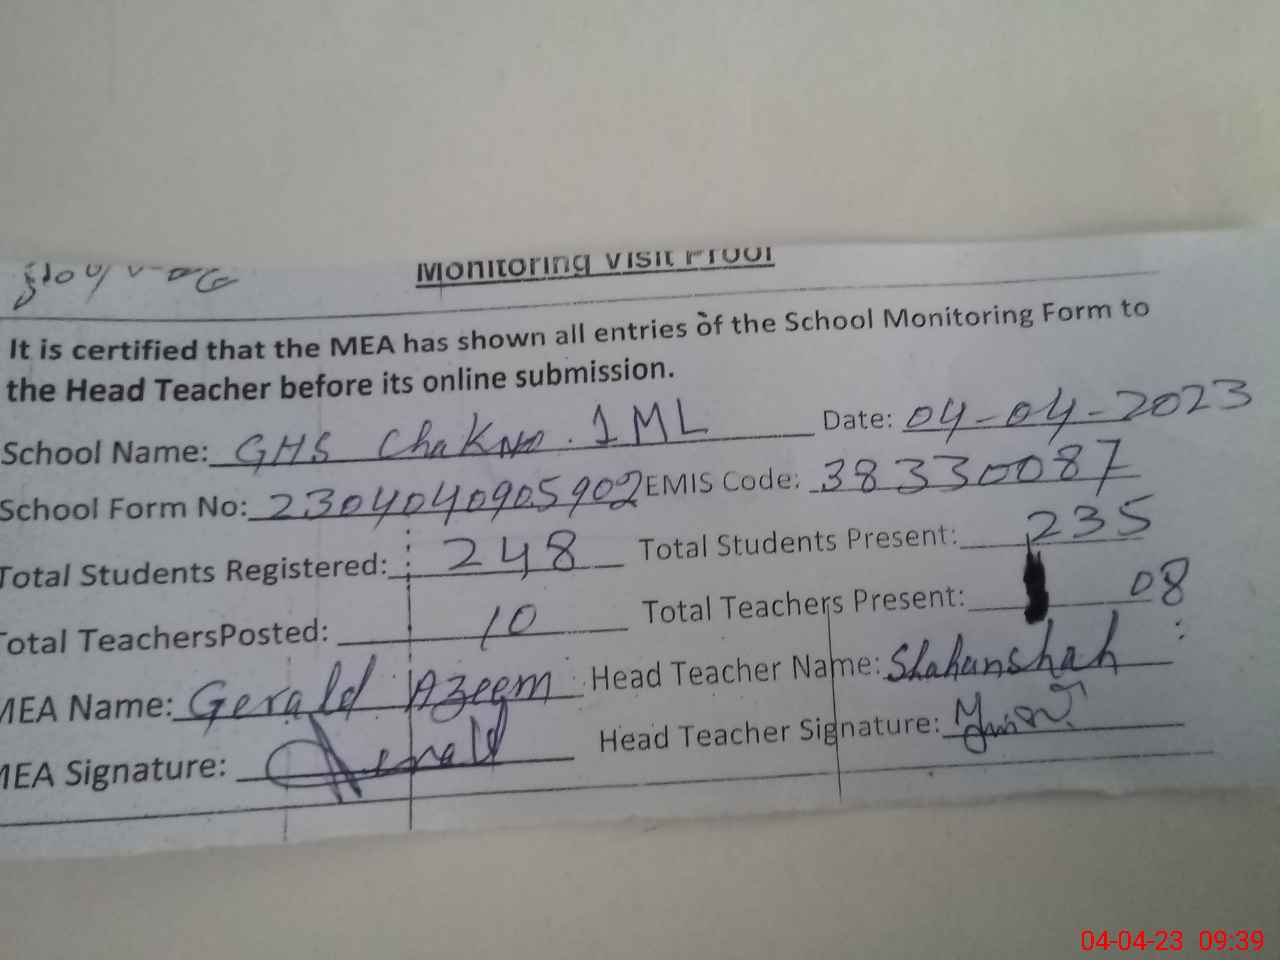 Monitoring Visit Proof
It is certified that the MEA has shown all entries of the School Monitoring Form to
the Head Teacher before its online submission.
School Name: GHS Chak No. 1 ML Date: 04-04-2023
School Form No: 2304040905902 EMIS Code: 38330087
Total Students Registered: 248 Total Students Present: 235
Total TeachersPosted: 10 Total Teachers Present: 08
MEA Name: Gerald Azeem Head Teacher Name: Shahunshah
MEA Signature: Gerald Head Teacher Signature:
04-04-23 09:39